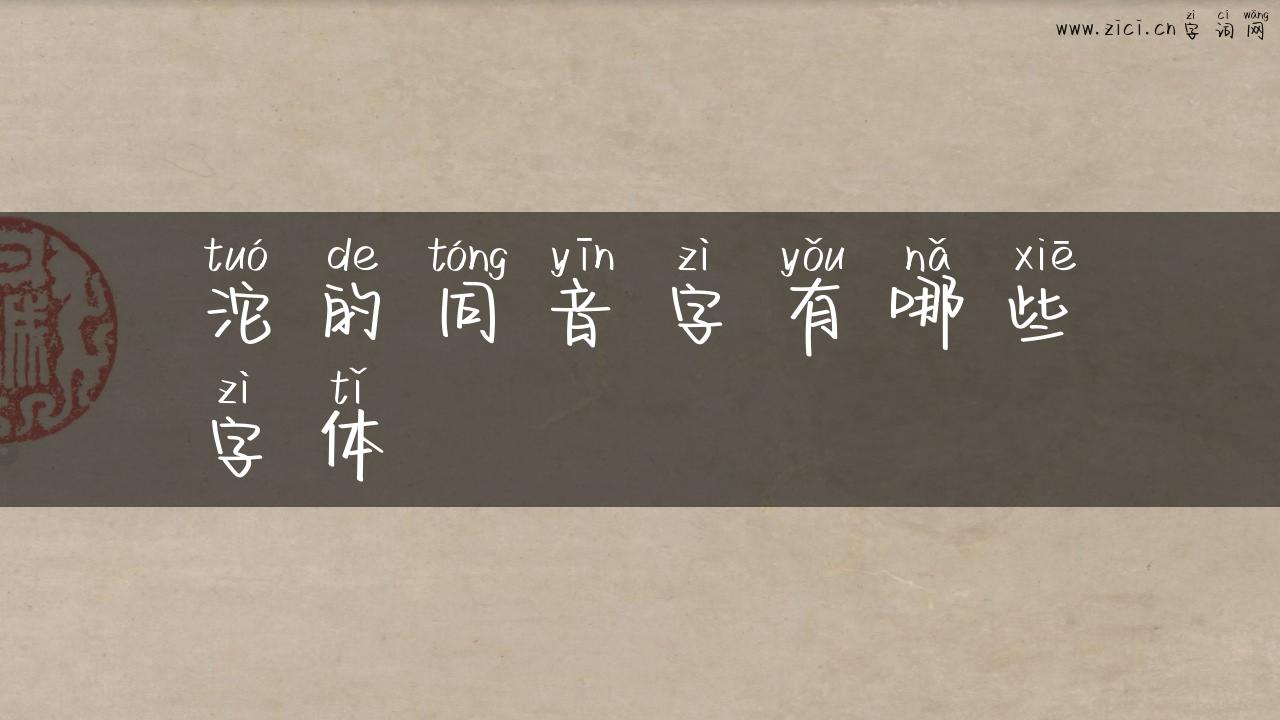 www.zici.cn字词网
zì cí wǎng
tuó de tóng yīn zì yǒu nǎ xiē
沱的同音字有哪些
zì tǐ
字体